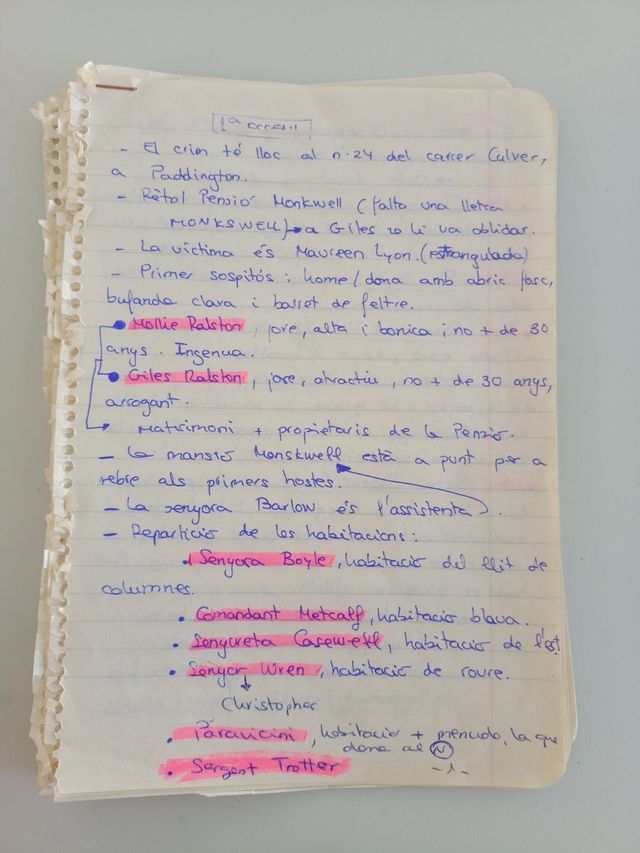 1ª escena
- El crim té lloc al nº 24 del carrer Culver,
a Paddington.
- Rètol Pensió Monkwell (falta una lletra
MONKSWELL) → a Giles se li va oblidar.
- La víctima és Maureen Lyon. (estrangulada)
- Primer sospitós: home/dona amb abric fosc,
bufanda clara i barret de feltre.
• Mollie Ralston, jove, alta i bonica; no + de 30
anys. Ingenua.
• Giles Ralston, jove, atractiu, no + de 30 anys,
arrogant.
→ Matrimoni + propietaris de la Pensió.
- La mansió Monskwell està a punt per a
rebre als primers hostes.
- La senyora Barlow és l'assistenta.
- Repartició de les habitacions:
• Senyora Boyle, habitació del llit de
columnes.
• Comandant Metcalf, habitació blava.
• Senyoreta Casewell, habitació de l'est
• Senyor Wren, habitació de roure.
Christopher
• Paravicini, habitació + menuda, la que
dona al N
• Sergent Trotter
-1-